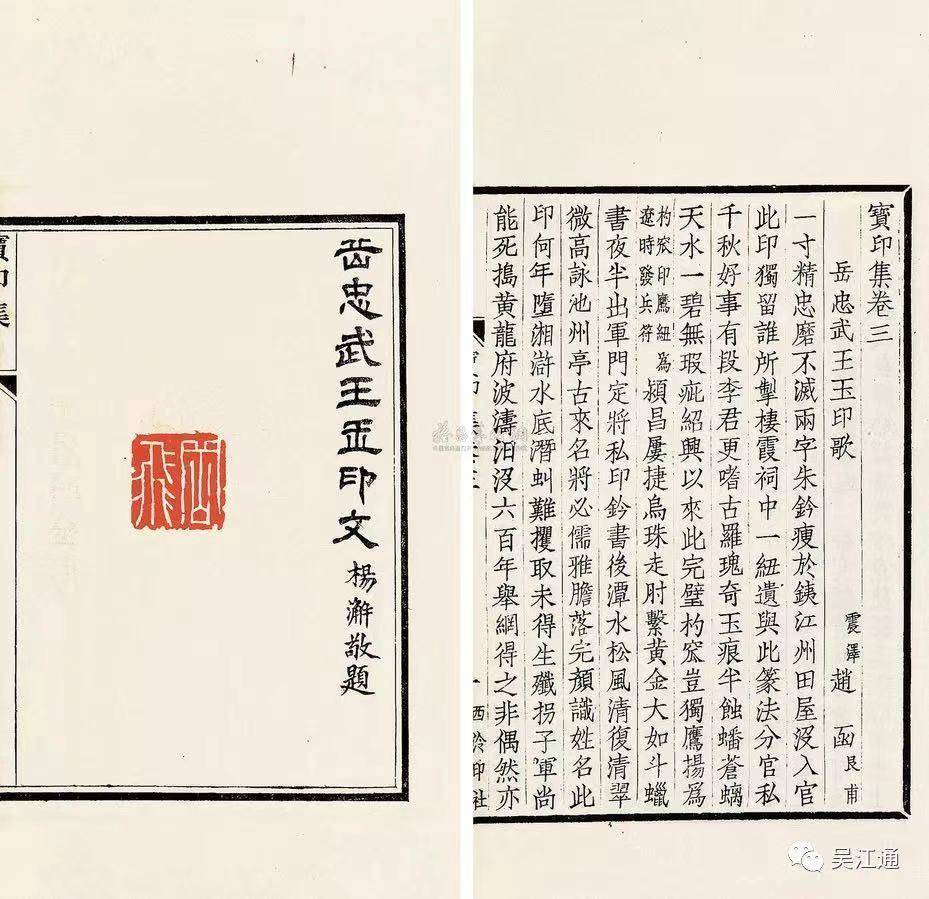 寶印集卷三
岳忠武王玉印歌
震澤 趙 函 艮甫
一寸精忠磨不滅兩字朱鈐瘦於銕江州田屋沒入官
此印獨留誰所掣棲霞祠中一紐遺與此篆法分官私
千秋好事有段李君更嗜古羅瑰奇玉痕半蝕蟠蒼螭
天水一碧無瑕疵紹興以來此完璧杓窊豈獨鷹揚為
杓窊印鷹紐為
遼時發兵符
潁昌屢捷烏珠走肘繫黃金大如斗蠟
書夜半出軍門定將私印鈐書後潭水松風清復清翠
微高詠池州亭古來名將必儒雅膽落完顏識姓名此
印何年墮湘滸水底潛虯難攫取未得生殲拐子軍尚
能死搗黃龍府波濤汩沒六百年舉網得之非偶然亦
一
西泠印社
岳忠武王玉印文
楊澥敬題
岳飛
寶印集
吴江通